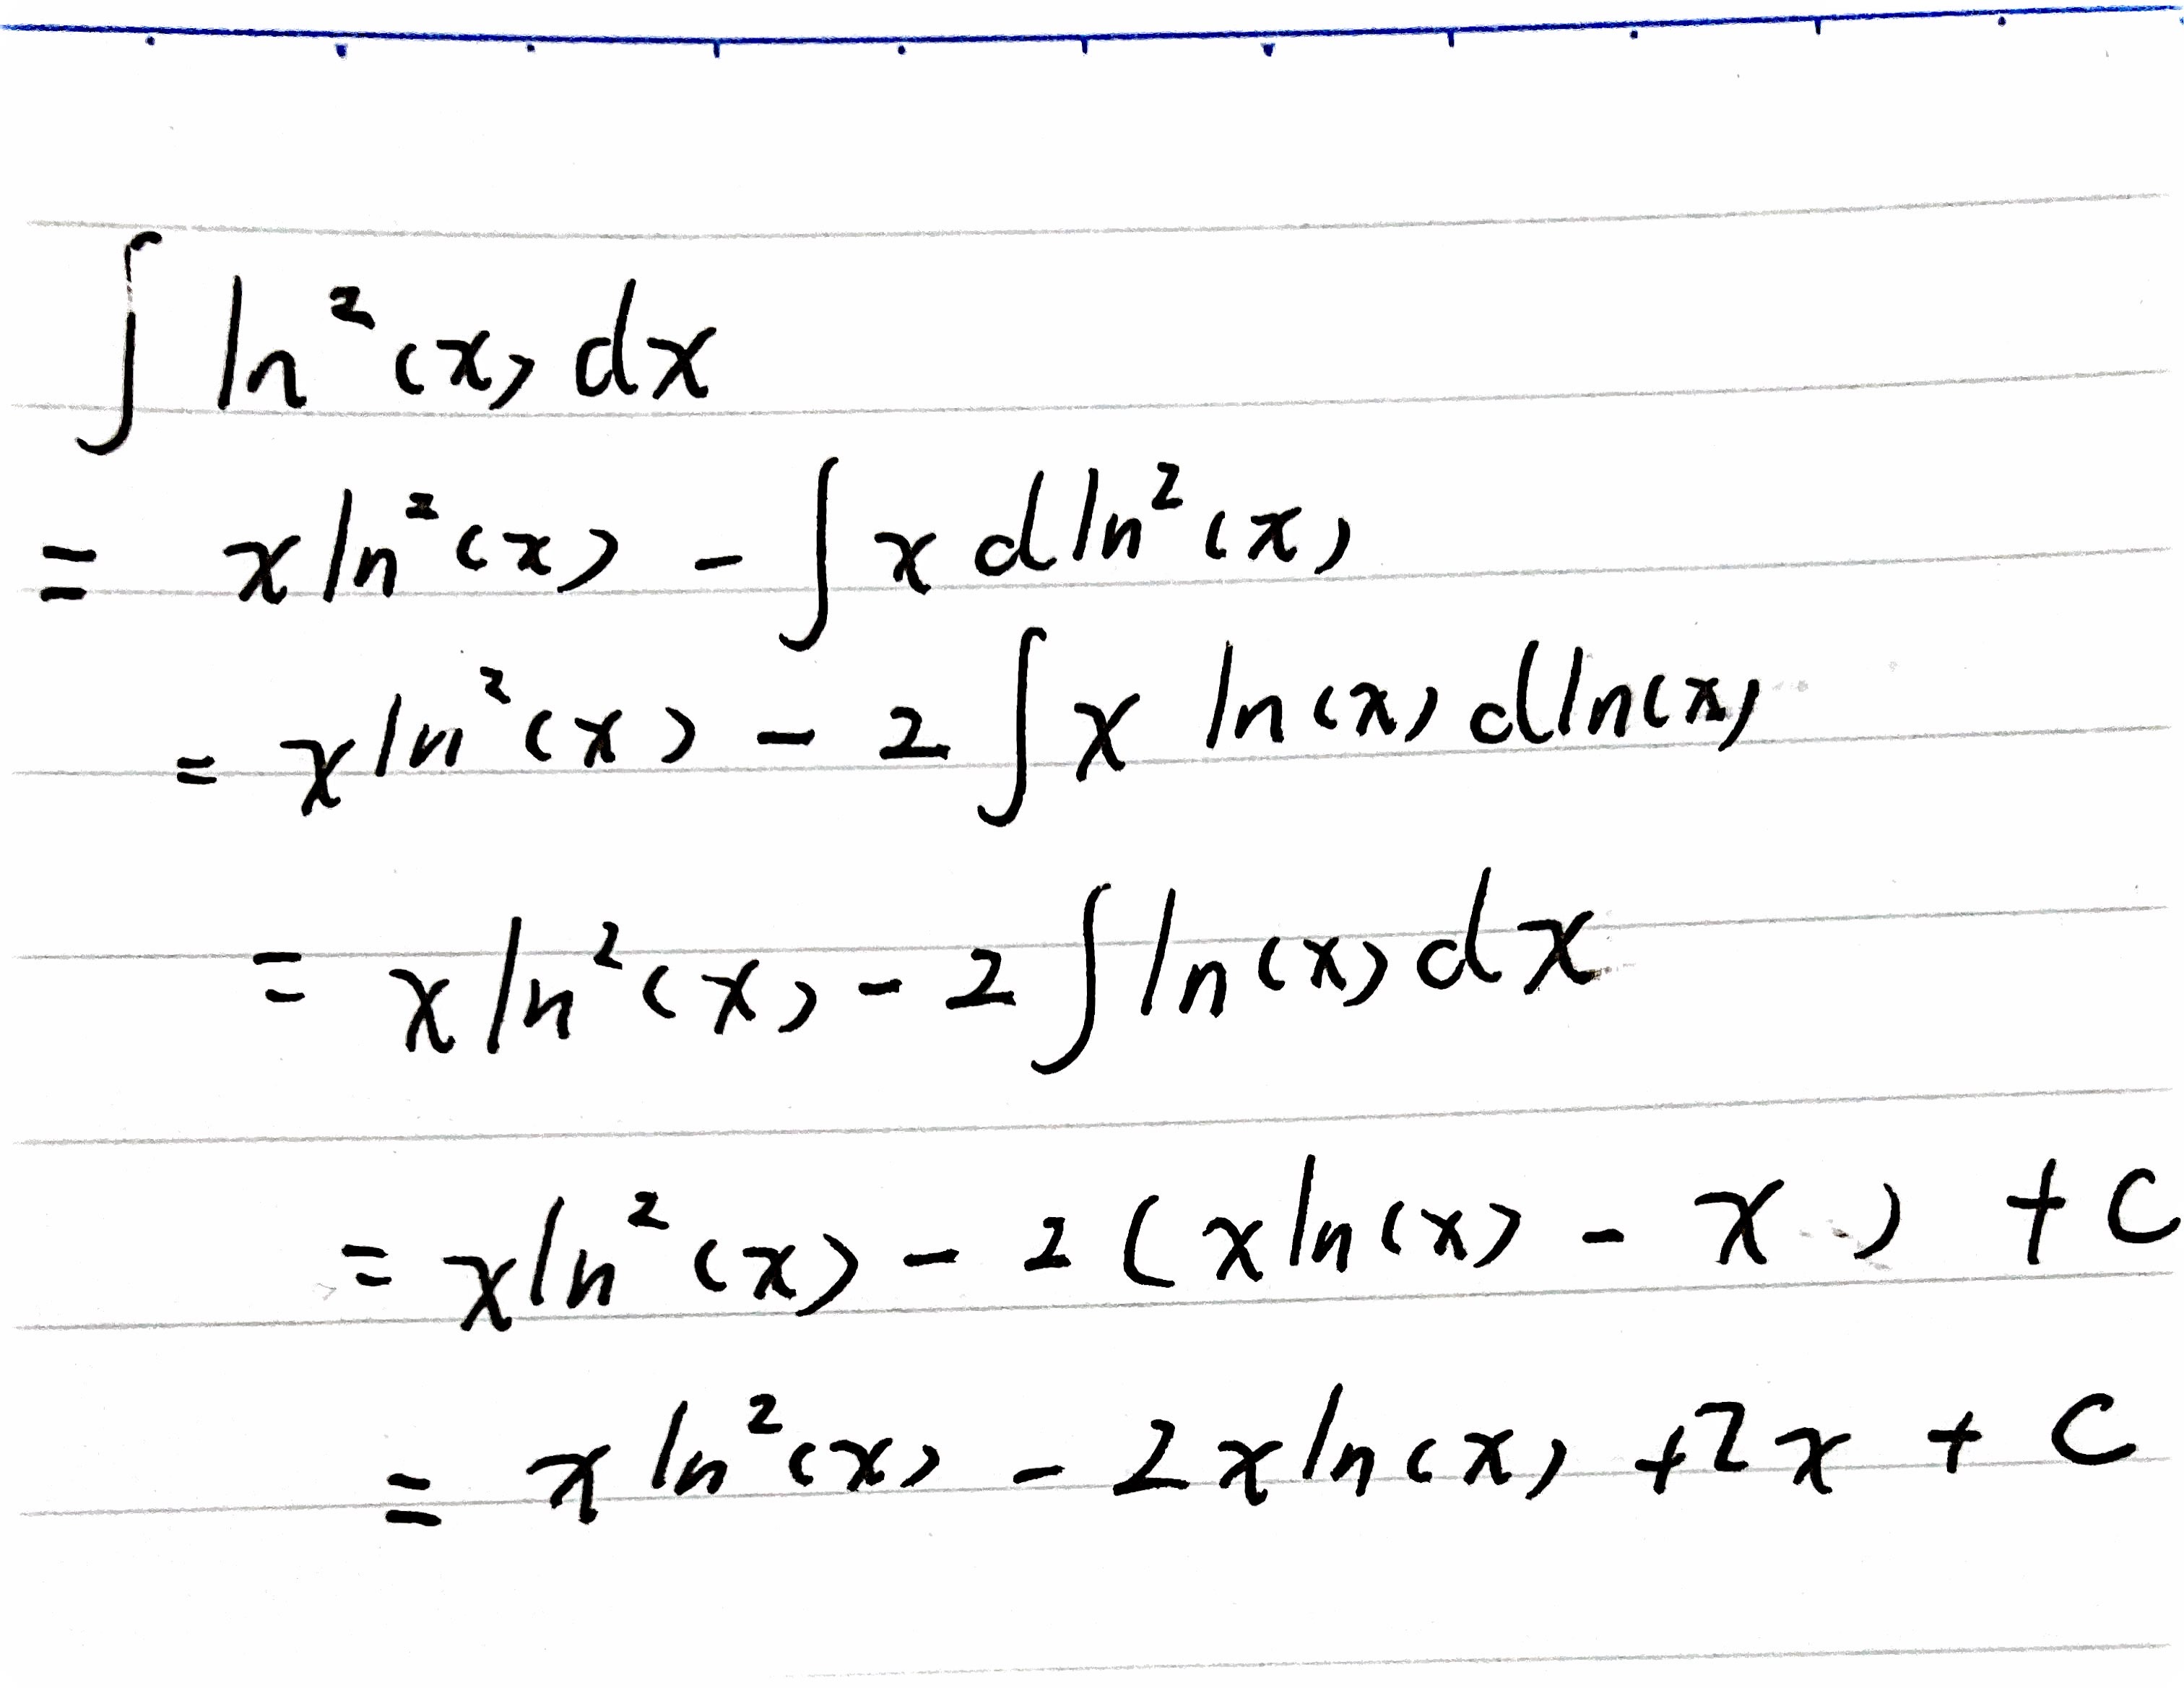 ∫ ln²(x) dx
= x ln²(x) - ∫ x d ln²(x)
= x ln²(x) - 2 ∫ x ln(x) d ln(x)
= x ln²(x) - 2 ∫ ln(x) dx
= x ln²(x) - 2 ( x ln(x) - x ) + C
= x ln²(x) - 2 x ln(x) + 2 x + C